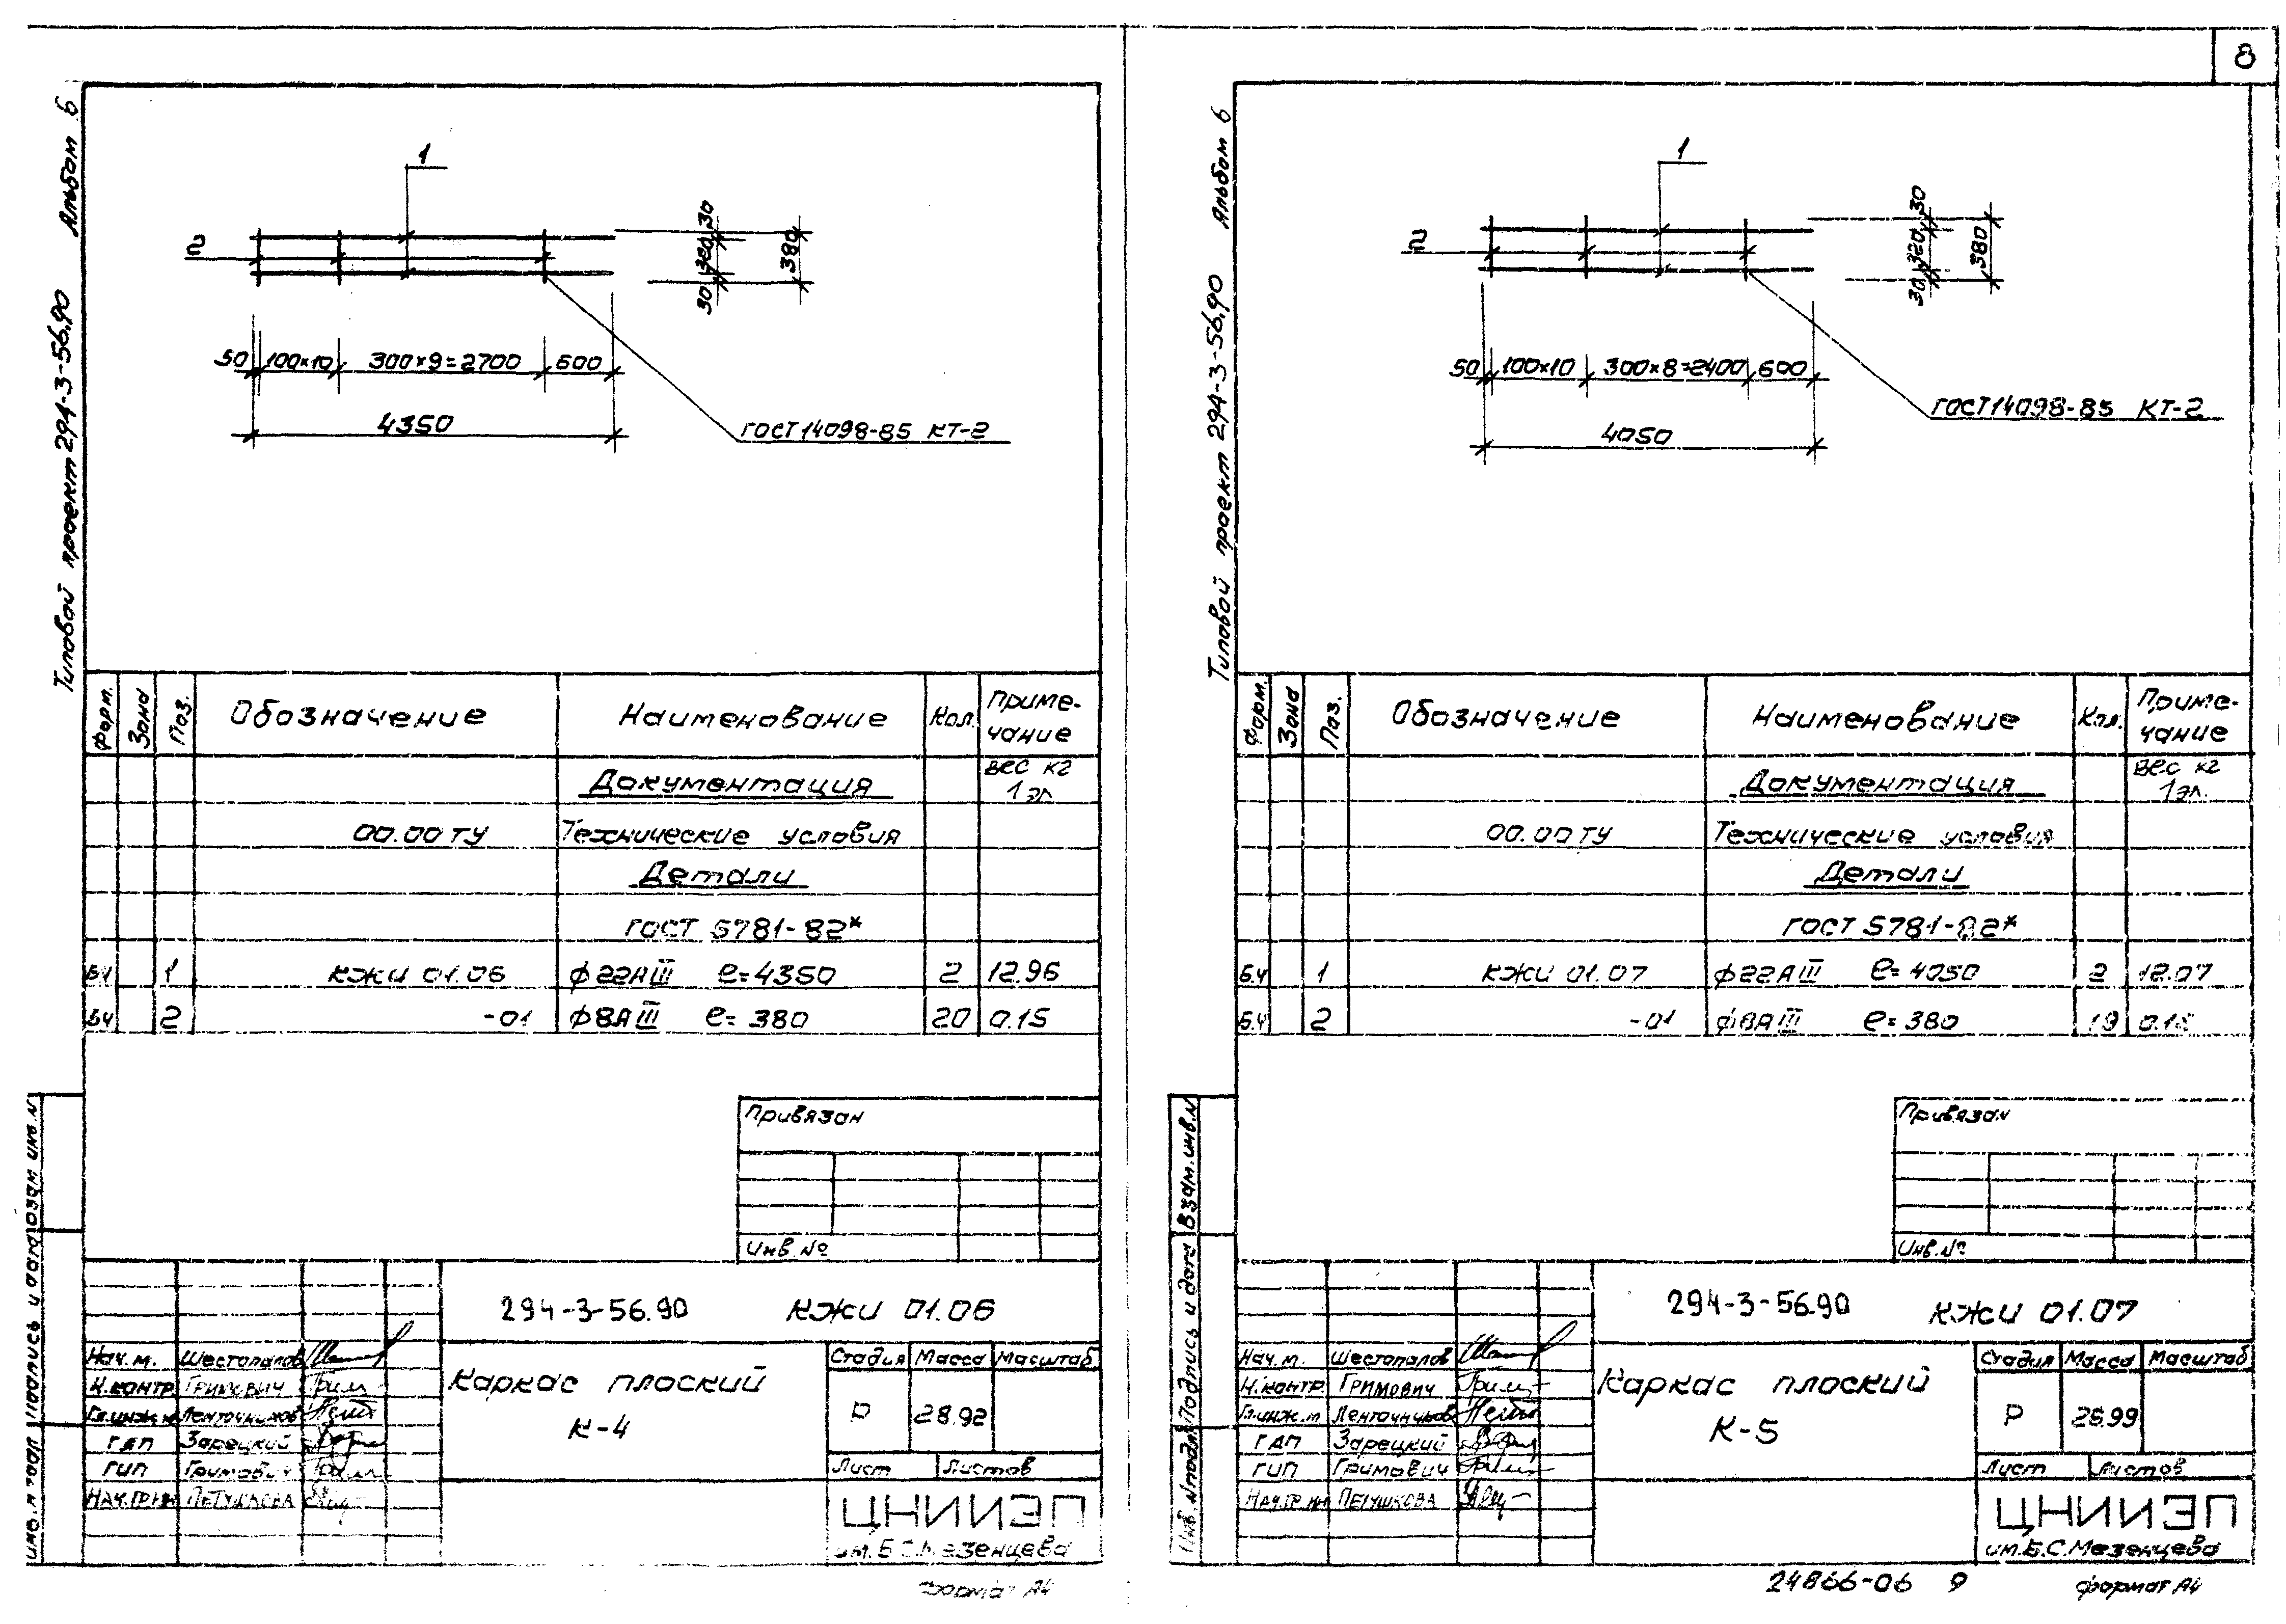 8
Типовой проект 294-3-56.90 Альбом 6
1
2
30
320
30
380
50 100×10 300×9=2700 600
4350
ГОСТ 14098-85 КТ-2
Форм. Зона Поз. Обозначение Наименование Кол. Приме-
чание
Документация вес кг
1 эл.
00.00 ТУ Технические условия
Детали
ГОСТ 5781-82*
БЧ 1 КЖИ 01.06 ф22АIII ℓ=4350 2 12.96
БЧ 2 -01 ф8АIII ℓ= 380 20 0.15
Привязан
Инв. №
294-3-56.90 КЖИ 01.06
Нач. м. Шестопалов
Н.контр. Гримович
Гл.инж.м Ленточников
ГАП Зарецкий
ГИП Гримович
Нач.гр.нн Петушкова
Каркас плоский
К-4
Стадия Масса Масштаб
Р 28.92
Лист Листов
ЦНИИЭП
им. Б.С. Мезенцева
Инв. N подл Подпись и дата Взам. инв. N
Формат А4
Типовой проект 294-3-56.90 Альбом 6
1
2
30
320
30
380
50 100×10 300×8=2400 600
4050
ГОСТ 14098-85 КТ-2
Форм. Зона Поз. Обозначение Наименование Кол. Приме-
чание
Документация вес кг
1 эл.
00.00 ТУ Технические условия
Детали
ГОСТ 5781-82*
Б.Ч 1 КЖИ 01.07 ф22АIII ℓ= 4050 2 12.07
Б.Ч 2 -01 ф8АIII ℓ= 380 19 0.15
Привязан
Инв. №
294-3-56.90 КЖИ 01.07
Нач. м. Шестопалов
Н.контр. Гримович
Гл.инж.м Ленточников
ГАП Зарецкий
ГИП Гримович
Нач.гр.нн Петушкова
Каркас плоский
К-5
Стадия Масса Масштаб
Р 26.99
Лист Листов
ЦНИИЭП
им. Б.С. Мезенцева
Инв. N подл Подпись и дата Взам. инв. N
24866-06 9 формат А4